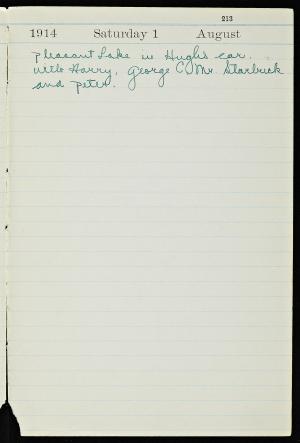 213
1914 Saturday 1 August
pleasant Lake in Hugh's car.
with Harry, George C. Mr. Starbuck
and peter.